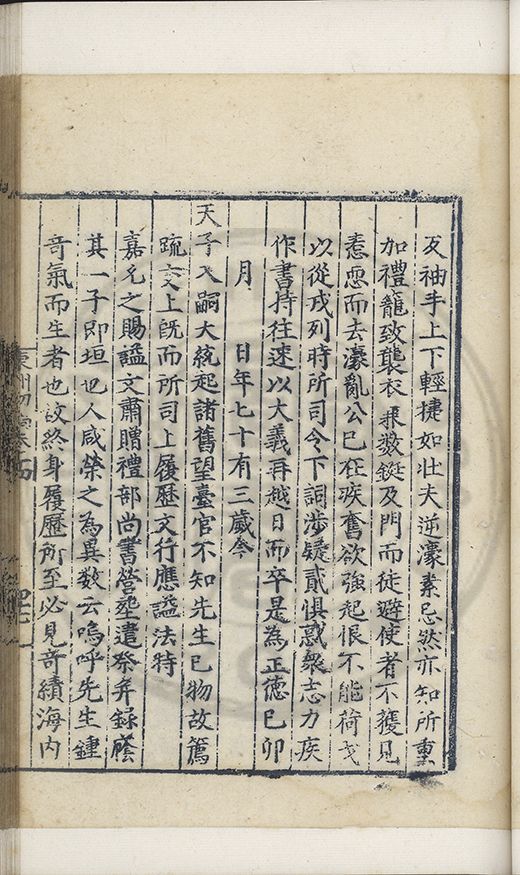 及袖手上下輕捷如壯夫逆濠素忌然亦知所重
加禮籠致襲衣乘数鋌及門而徒避使者不獲見
恚恧而去濠亂公已在疾奮欲強起恨不能荷戈
以從戎列時所司令下詞涉疑貳惧惑衆志力疾
作書持往速以大義再越日而卒是為正德己卯
月　日年七十有三歲今
天子入嗣大統起諸舊望臺官不知先生已物故薦
疏交上既而所司上履歷文行應謚法特
嘉允之賜謚文肅贈禮部尚書營塟遣祭并録廕
其一子即垣也人咸榮之為異数云嗚呼先生鍾
竒氣而生者也故終身履歷所至必見竒績海内